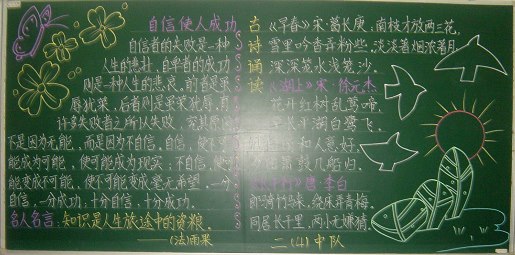 自信使人成功
自信者的失败是一种
人生的悲壮,自卑者的成功
则是一种人生的悲哀,前者是虽
辱犹荣,后者则是虽荣犹辱,有
许多失败者之所以失败,究其原因
不是因为无能,而是因为不自信,自信,使不可
能成为可能,使可能成为现实;不自信,使可
能变成不可能,使不可能变成毫无希望。一分
自信,一分成功;十分自信,十分成功。
名人名言:知识是人生旅途中的资粮。
——(法)雨果
古诗诵读
《早春》宋·葛长庚
南枝才放两三花,
雪里吟香弄粉些。淡淡著烟浓著月,
深深笼水浅笼沙。
《湖上》宋 徐元杰
花开红树乱莺啼,
草长平湖白鹭飞。
日和人意好,
箫鼓几船归。
干行》唐 李白
郎骑竹马来,绕床弄青梅,
同居长干里,两小无嫌猜。
二(4)中队